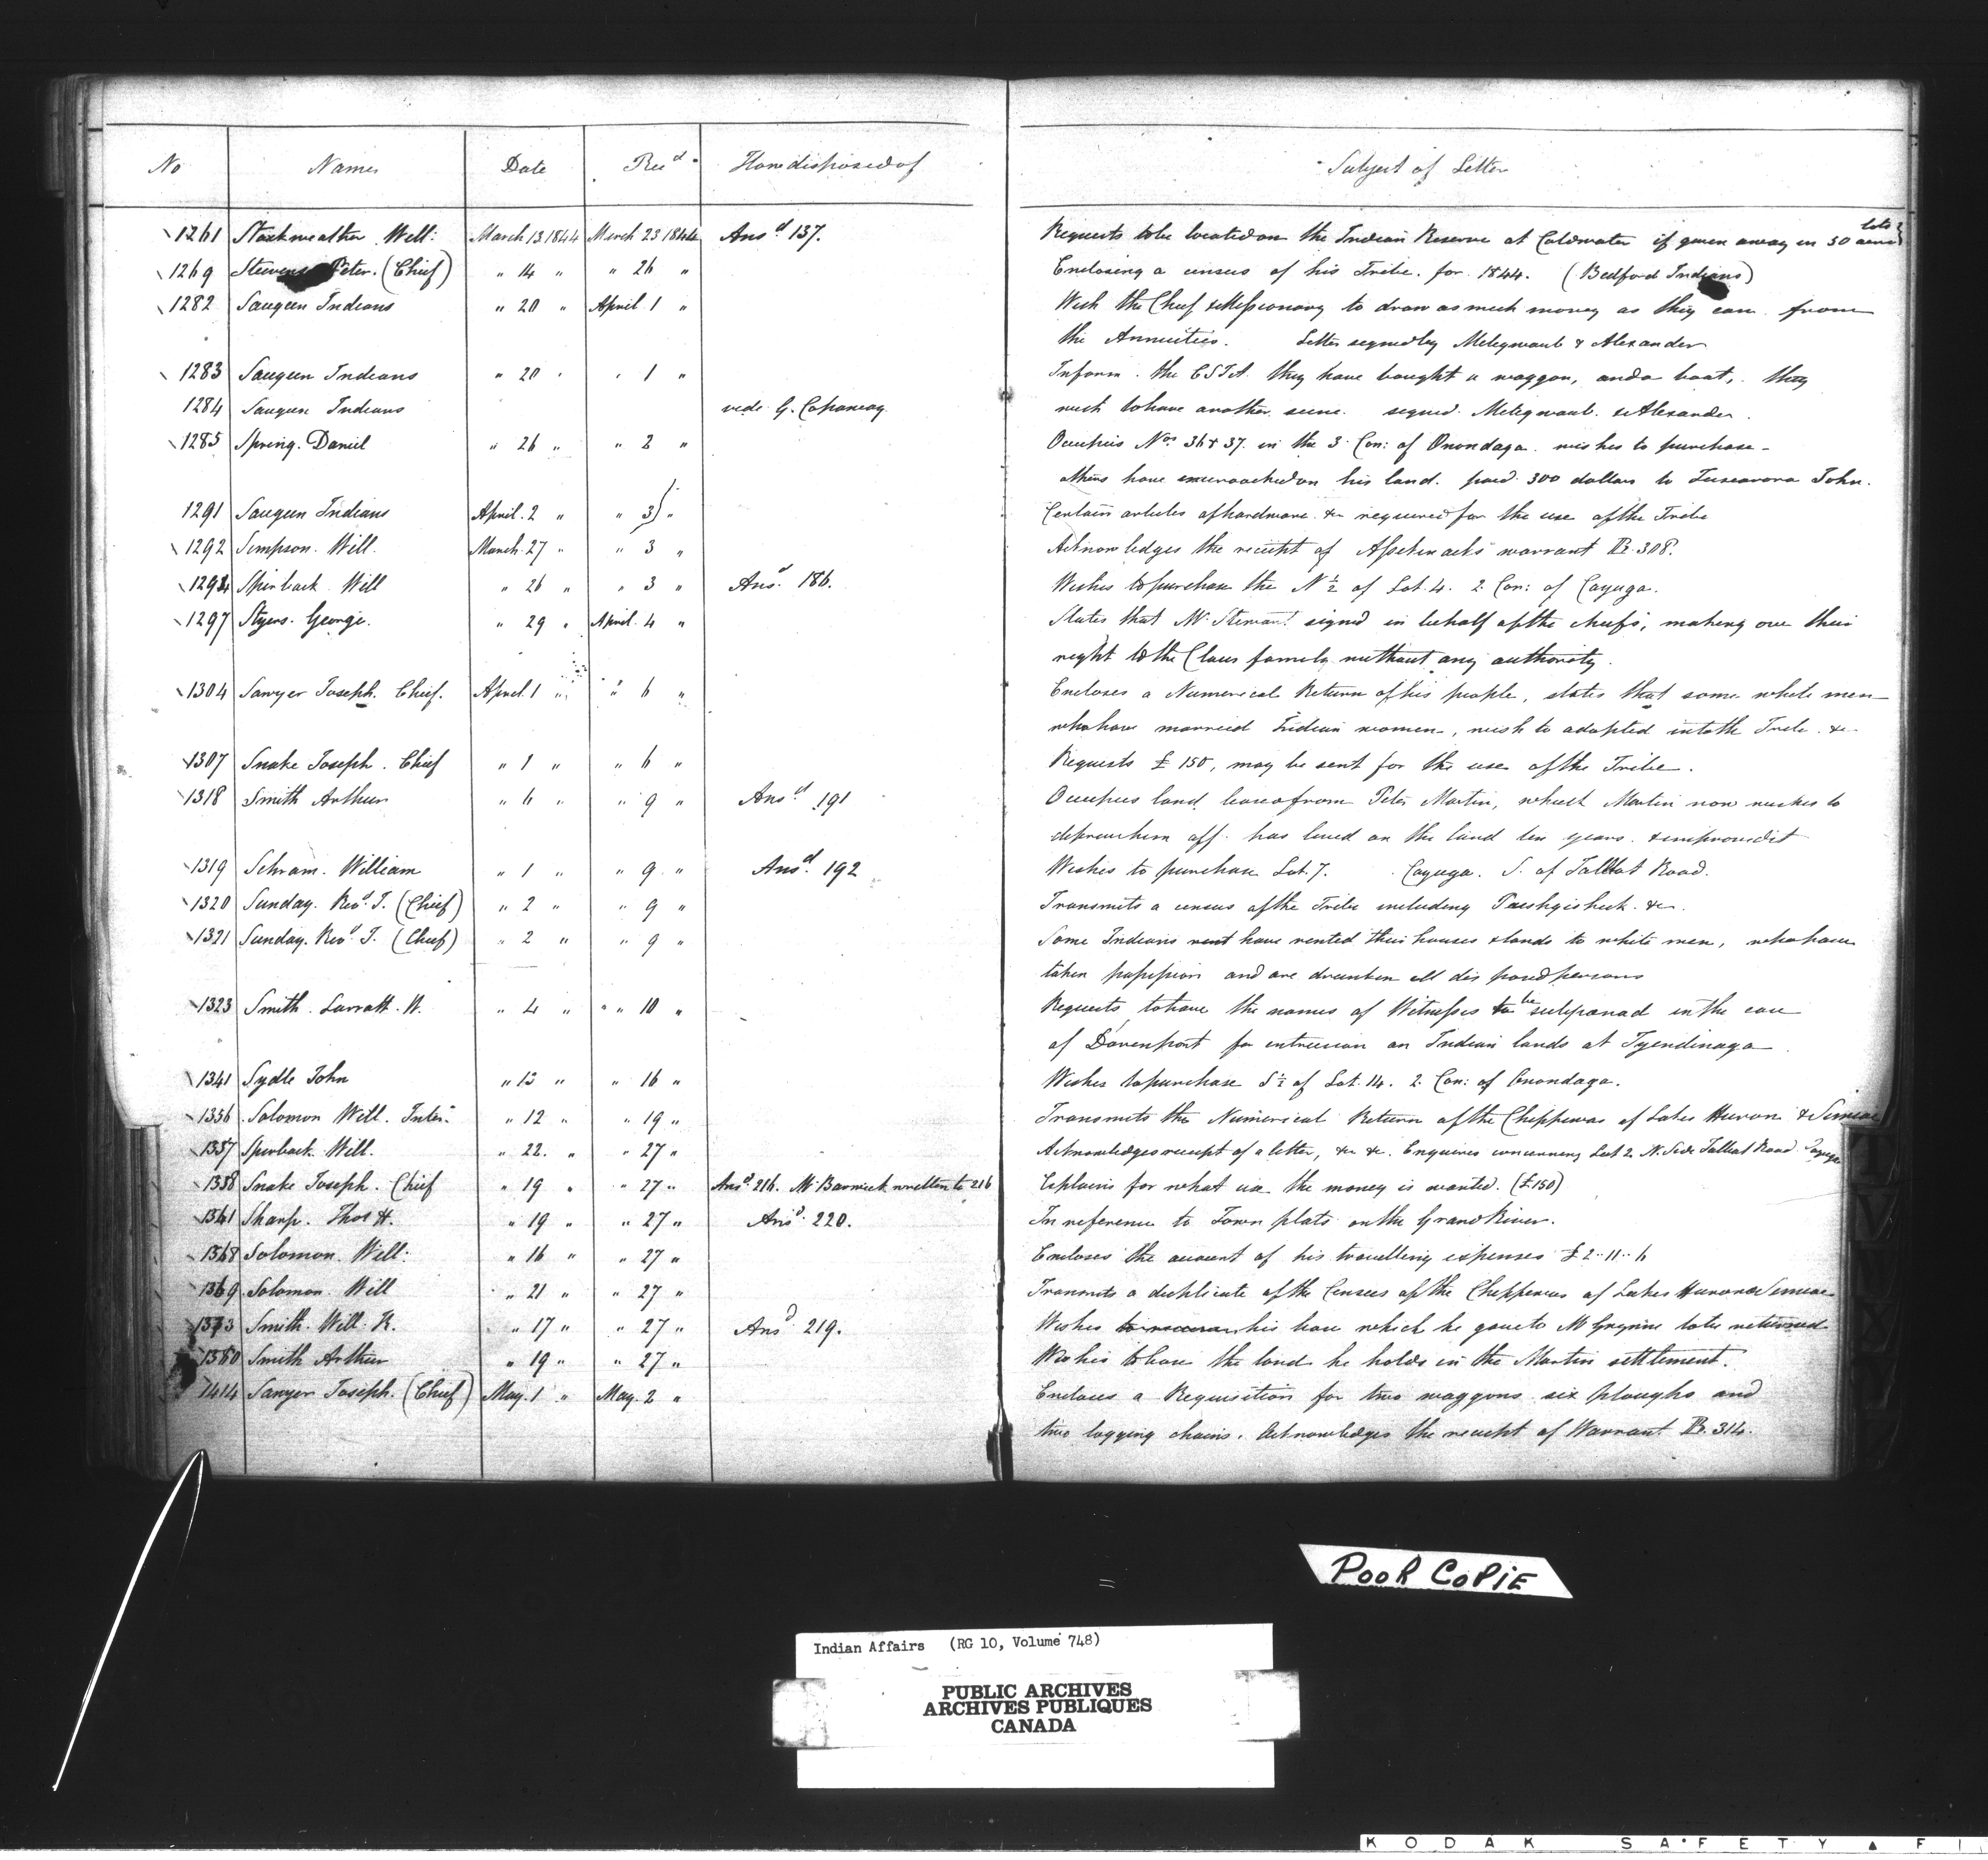 No Names Date Recd. How disposed of Subject of Letter
1261 Starkweather Will: March 13 1844 March 23 1844 Ansd 137. Requests to be located on the Indian Reserve at Coldwater if given away in 50 acre lots
1269 Steevens Peter. (Chief) " 14 " " 26 " Enclosing a census of his Tribe. for 1844. (Bedford Indians)
1282 Saugeen Indians " 20 " April 1 " Wish the Chief & Missionary to draw as much money as they can from
the Annuities. Letter signed by Metegwaub & Alexander
1283 Saugeen Indians " 20 " " 1 " Inform the CSIA. they have bought a waggon, and a boat, they
1284 Saugeen Indians vide G. Copaway wish to have another seine. signed. Metegwaub. & Alexander.
1285 Spring. Daniel " 26 " " 2 " Occupies Nos. 36 & 37. in the 3 Con: of Onondaga. wishes to purchase -
others have encroached on his land. paid 300 dollars to Tuscarora John.
1291 Saugeen Indians April. 2 " " 3 " Certain articles of hardware &c required for the use of the Tribe
1292 Simpson. Will. March. 27 " " 3 " Acknowledges the receipt of warrant B. 308.
1294 Spirback Will " 26 " " 3 " Ansd. 186. Wishes to purchase the N ½ of Lot. 4. 2 Con: of Cayuga.
1297 Styers. George. " 29 " April. 4 " States that Mr. Stewart signed in behalf of the chiefs, making over their
right to the Claus family without any authority.
1304 Sawyer Joseph. Chief. April. 1 " " 6 " Encloses a Numerical Return of his people, states that some white men
who have married Indian women, wish to adopted into the Tribe. &c
1307 Snake Joseph. Chief " 1 " " 6 " Requests £150, may be sent for the use of the Tribe.
1318 Smith Arthur " 6 " " 9 " Ansd. 191 Occupies land leased from Peter Martin, which Martin now wishes to
him off. has lived on the land ten years. & improved it
1319 Schram. William " 1 " " 9 " Ansd. 192 Wishes to purchase Lot. 7. Cayuga. S. of Talbot Road.
1320 Sunday. Revd. J. (Chief) " 2 " " 9 " Transmits a census of the Tribe including &c.
1321 Sunday. Revd. J. (Chief) " 2 " " 9 " Some Indians rent have rented their houses & lands to white men, who have
taken possession and are drunken ill disposed persons
1323 Smith. Larratt. W. " 4 " " 10 " Requests to have the names of Witnesses to be subpoenad in the case
of Davenport for intrusion on Indian lands at Tyendinaga
1341 Sydle John " 13 " " 16 " Wishes to purchase S ½ of Lot. 14. 2. Con: of Onondaga.
1356 Solomon Will. Inter: " 12 " " 19 " Transmits the Numerical Return of the Chippewas of Lakes Huron & Simcoe
1357 Spirback. Will. " 22. " " 27 " Acknowledges receipt of a letter, &c &c. Enquires concerning Lot 2. N. Side Talbot Road. Cayuga
1358 Snake Joseph. Chief " 19 " " 27 " Ansd. 216. Mr. Barwick written to 216 Explains for what use the money is wanted. (£150)
1361 Sharp. Thos H. " 19 " " 27 " Ansd. 220. In reference to Town plats on the Grand River.
1368 Solomon. Will: " 16 " " 27 " Encloses the account of his travelling expenses £2..11..6
1369 Solomon. Will " 21 " " 27 " Transmits a duplicate of the Census of the Chippewas of Lakes Huron & Simcoe
1373 Smith. Will. K. " 17 " " 27 " Ansd. 219. Wishes his which he gave to to be returned
1380 Smith Arthur " 19 " " 27 " Wishes to have the land he holds in the Martin settlement.
1414 Sawyer Joseph. (Chief) May. 1 " May. 2 " Encloses a Requisition for two waggons six ploughs and
two logging chains. Acknowledges the receipt of Warrant B. 314.
POOR COPIE
Indian Affairs (RG 10, Volume 748)
PUBLIC ARCHIVES
ARCHIVES PUBLIQUES
CANADA
KODAK SAFETY FI